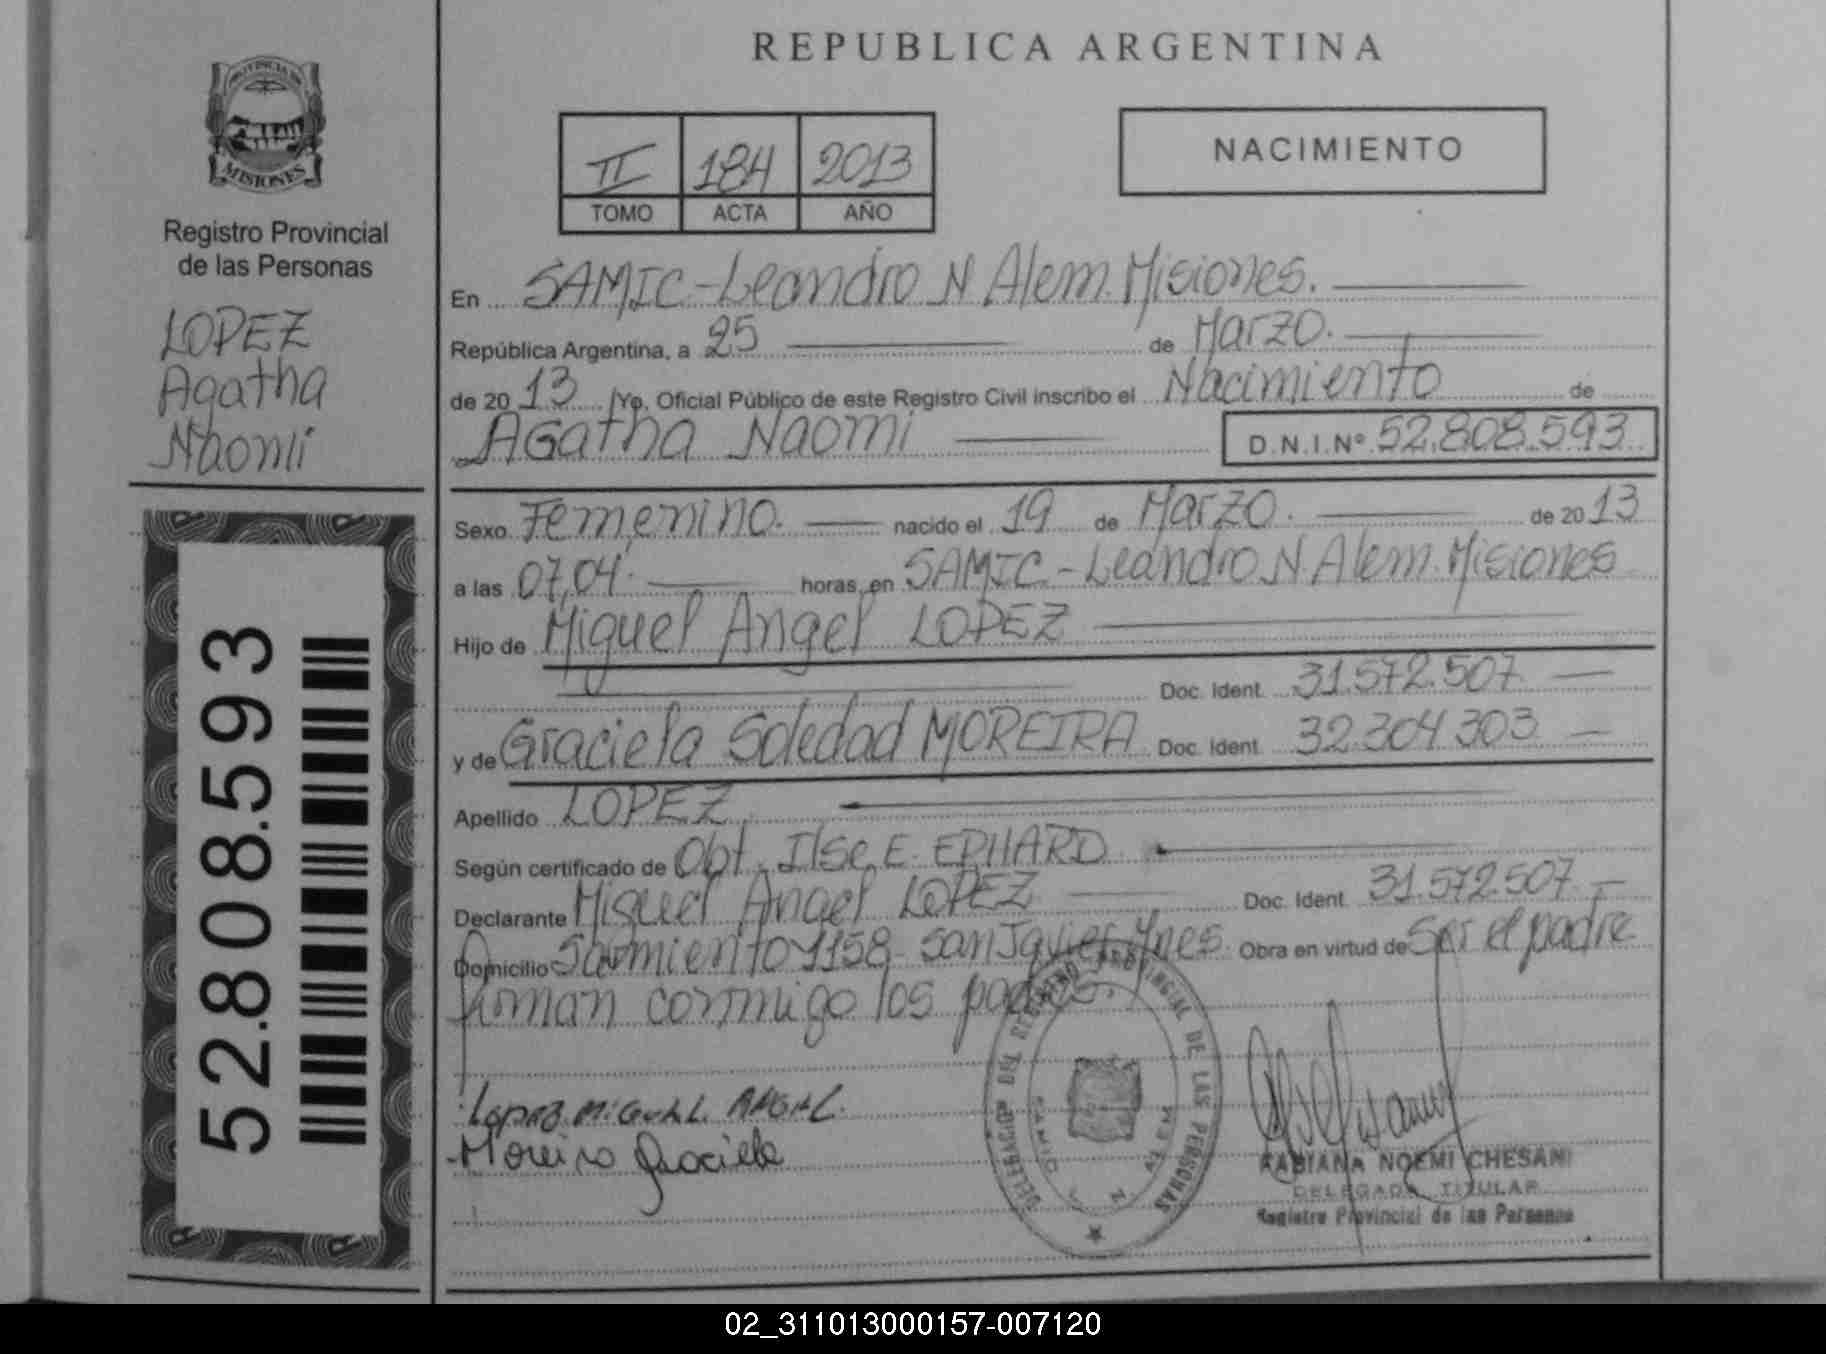 REPUBLICA ARGENTINA
PROVINCIA DE
MISIONES
Registro Provincial
de las Personas
LOPEZ
Agatha
Naomi
52.808.593
II 184 2013
TOMO ACTA AÑO
NACIMIENTO
En SAMIC-Leandro N Alem. Misiones.
República Argentina, a 25 de Marzo.
de 2013 Yo, Oficial Público de este Registro Civil inscribo el Nacimiento de
Agatha Naomi D.N.I.Nº 52.808.593
Sexo Femenino. nacido el 19 de Marzo. de 2013
a las 07,04. horas, en SAMIC.-Leandro N. Alem. Misiones
Hijo de Miguel Angel LOPEZ
Doc. Ident. 31.572.507
y de Graciela Soledad MOREIRA Doc. Ident. 32.304.303
Apellido LOPEZ
Según certificado de Obt. Ilse E. EPHARD
Declarante Miguel Angel LOPEZ Doc. Ident. 31.572.507
Domicilio Sarmiento 1158- San Javier Mnes. Obra en virtud de Ser el padre
Firman conmigo los padres.
Lopez Miguel Angel
Moreira Graciela
DELEGACION DEL REGISTRO PROVINCIAL DE LAS PERSONAS
SAMIC L N ALEM
FABIANA NOEMI CHESANI
DELEGADA TITULAR
Registro Provincial de las Personas
02_311013000157-007120